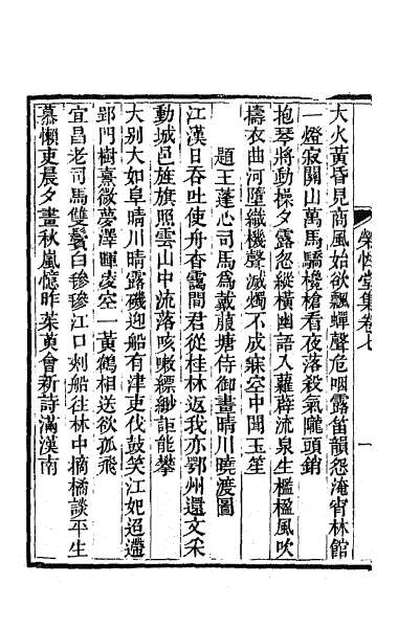 大火黃昏見商風始欲飄蟬聲危咽露笛韻怨淹宵林館
一燈寂關山萬馬驕欃槍看夜落殺氣隴頭銷
抱琴將動操夕露忽縱橫幽語入蘿薜流泉生檻楹風吹
擣衣曲河墮織機聲滅燭不成寐空中聞玉笙
題王蓬心司馬為戴菔塘侍御畫晴川曉渡圖
江漢日吞吐使舟香靄間君從桂林返我亦鄂州還文采
動城邑旌旗照雲山中流落咳嗽縹緲詎能攀
大别大如阜晴川晴露磯迎船有津吏伐鼓笑江妃迢遞
郢門樹熹微夢澤暉凌空一黃鶴相送欲孤飛
宜昌老司馬雙鬢白毿毿江口刺船往林中摘橘談平生
慕懶吏晨夕畫秋嵐憶昨茱萸會新詩滿漢南
榮性堂集卷七
一